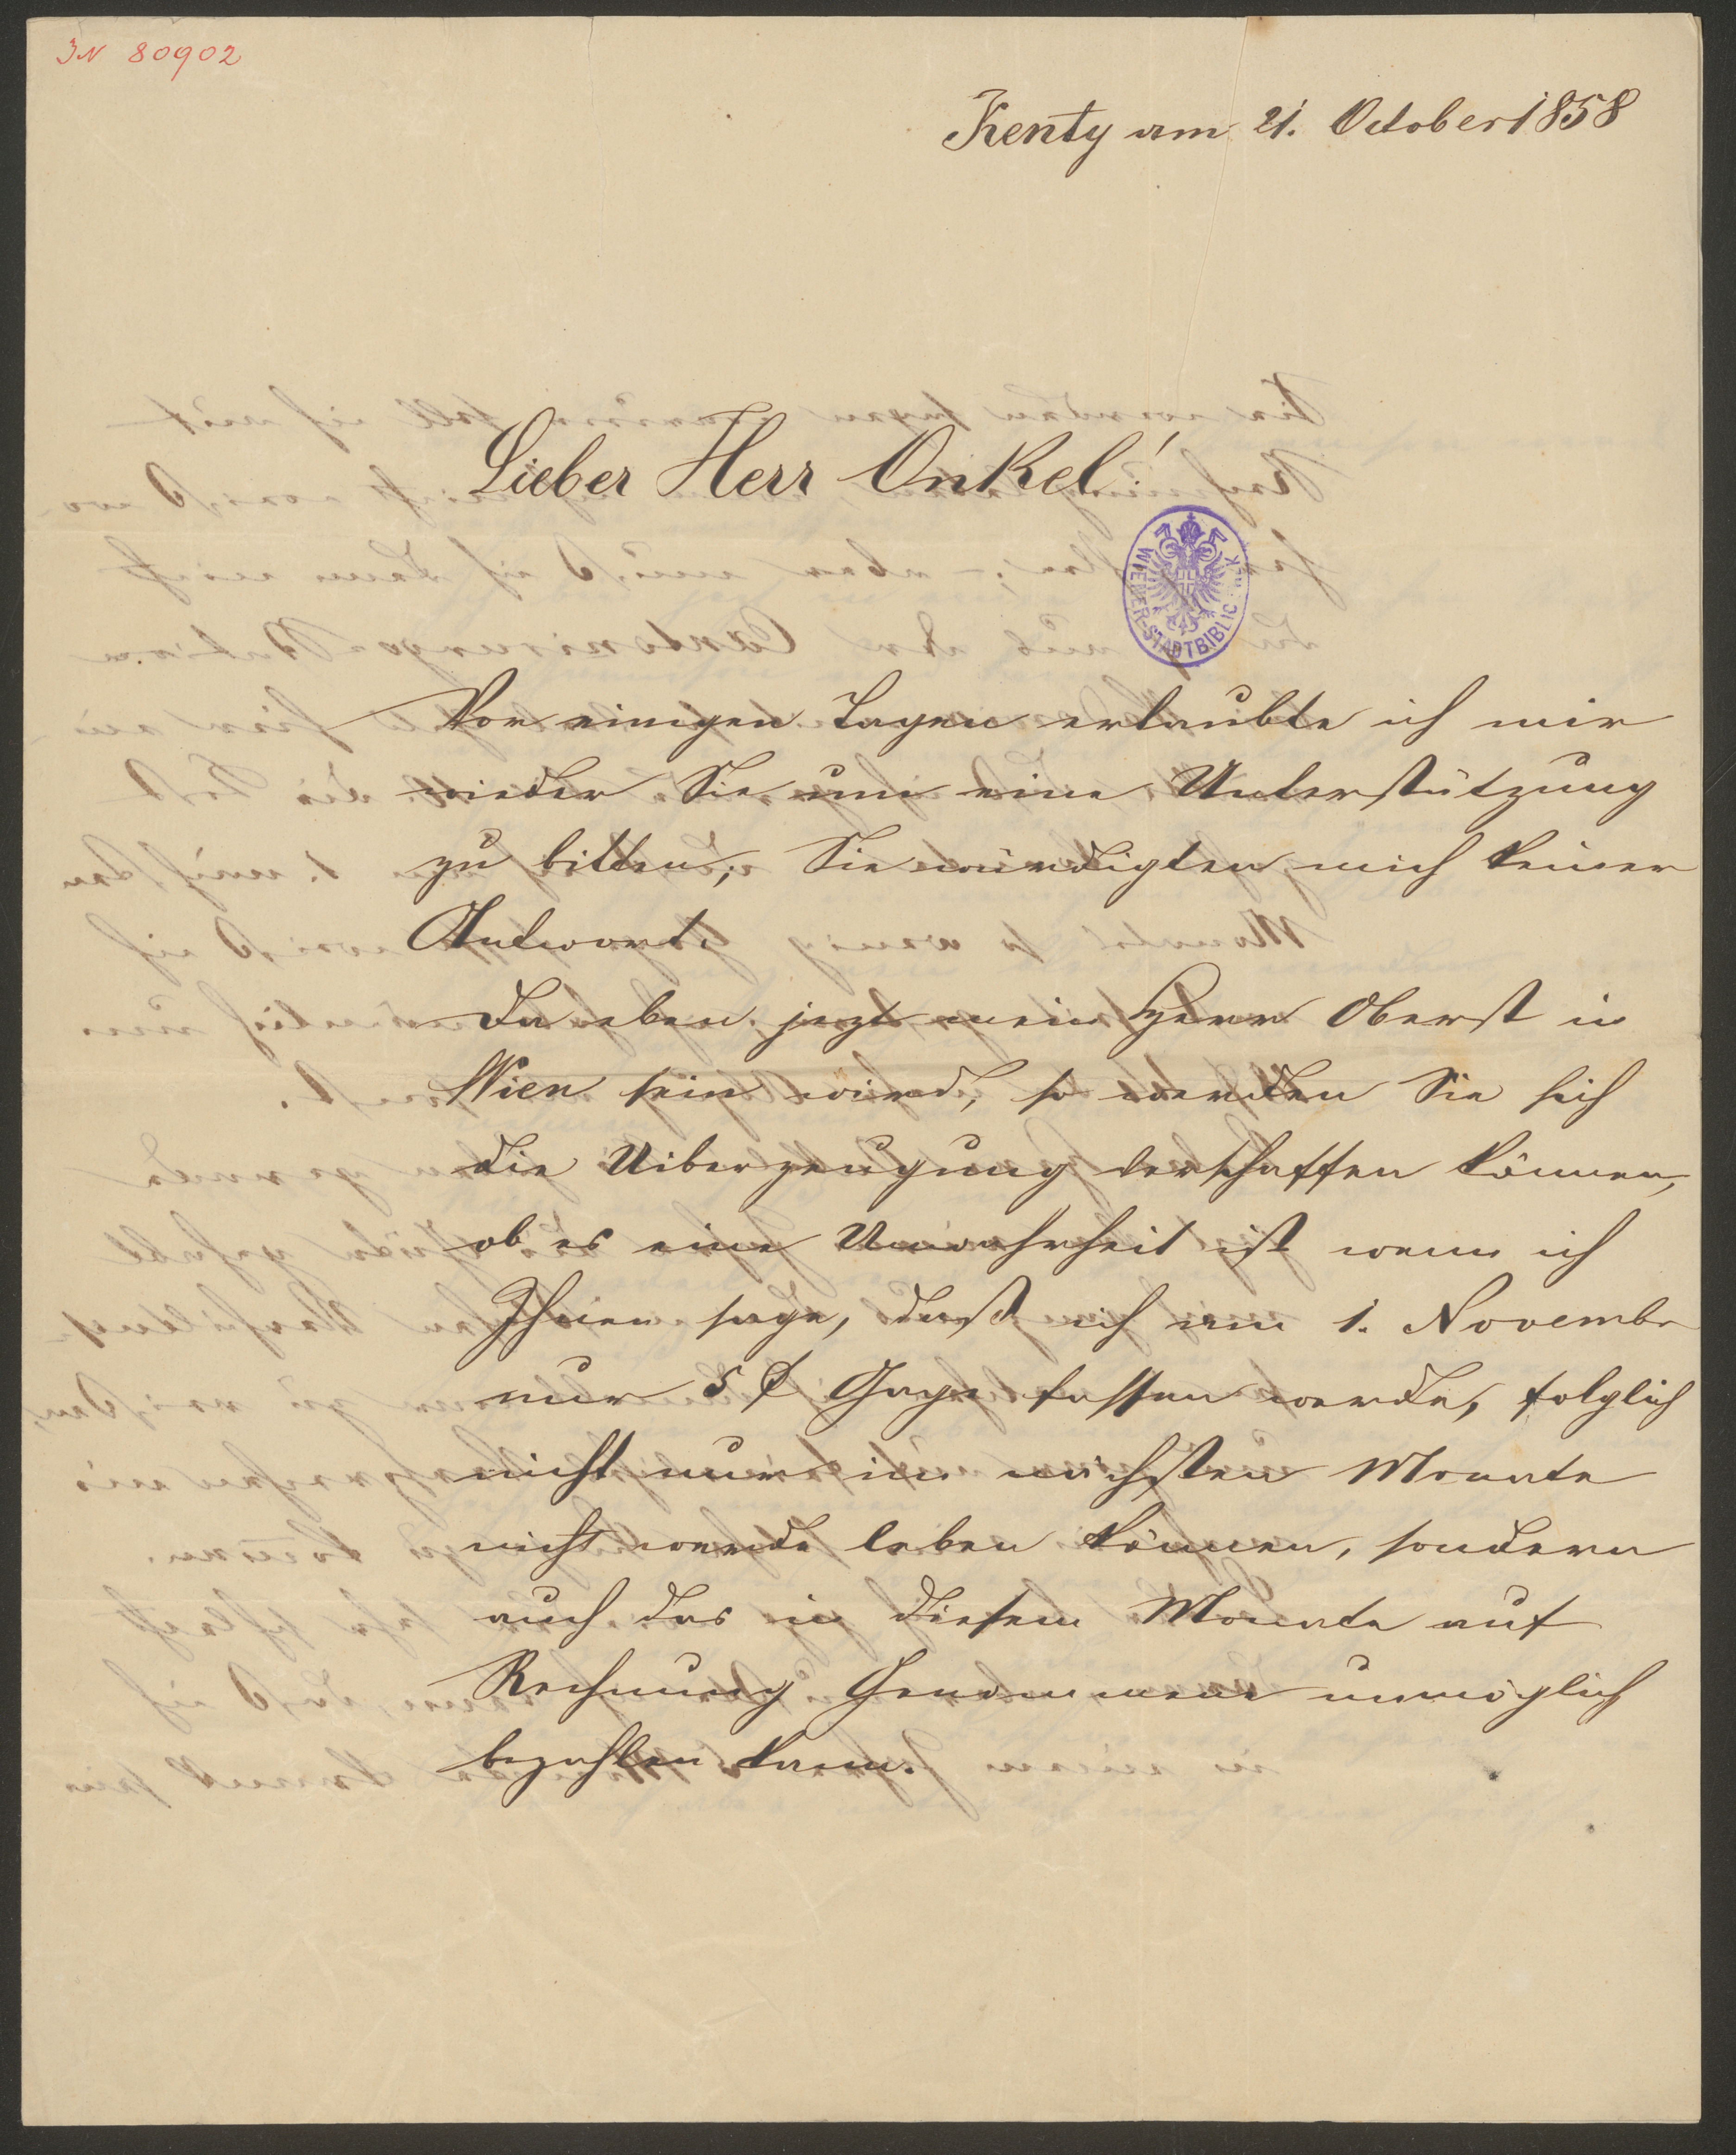 IN 80902
Kenty am 21. October 1858
Lieber Herr Onkel!
WIENER STADTBIBLIOTHEK
Vor einigen Tagen erlaubte ich mir
wieder Sie um eine Unterstützung
zu bitten; Sie würdigten mich keiner
Antwort.
Da eben jezt mein Herr Oberst in
Wien sein wird, so werden Sie sich
die Uiberzeugung verschaffen können,
ob es eine Unwahrheit ist wenn ich
Ihnen sage, daß ich am 1. Novembr
nur 5 f Gage fassen werde, folglich
nicht nur im nächsten Monate
nicht werde leben können, sondern
auch das in diesem Monate auf
Rechnung Genommene unmöglich
bezahlen kann.